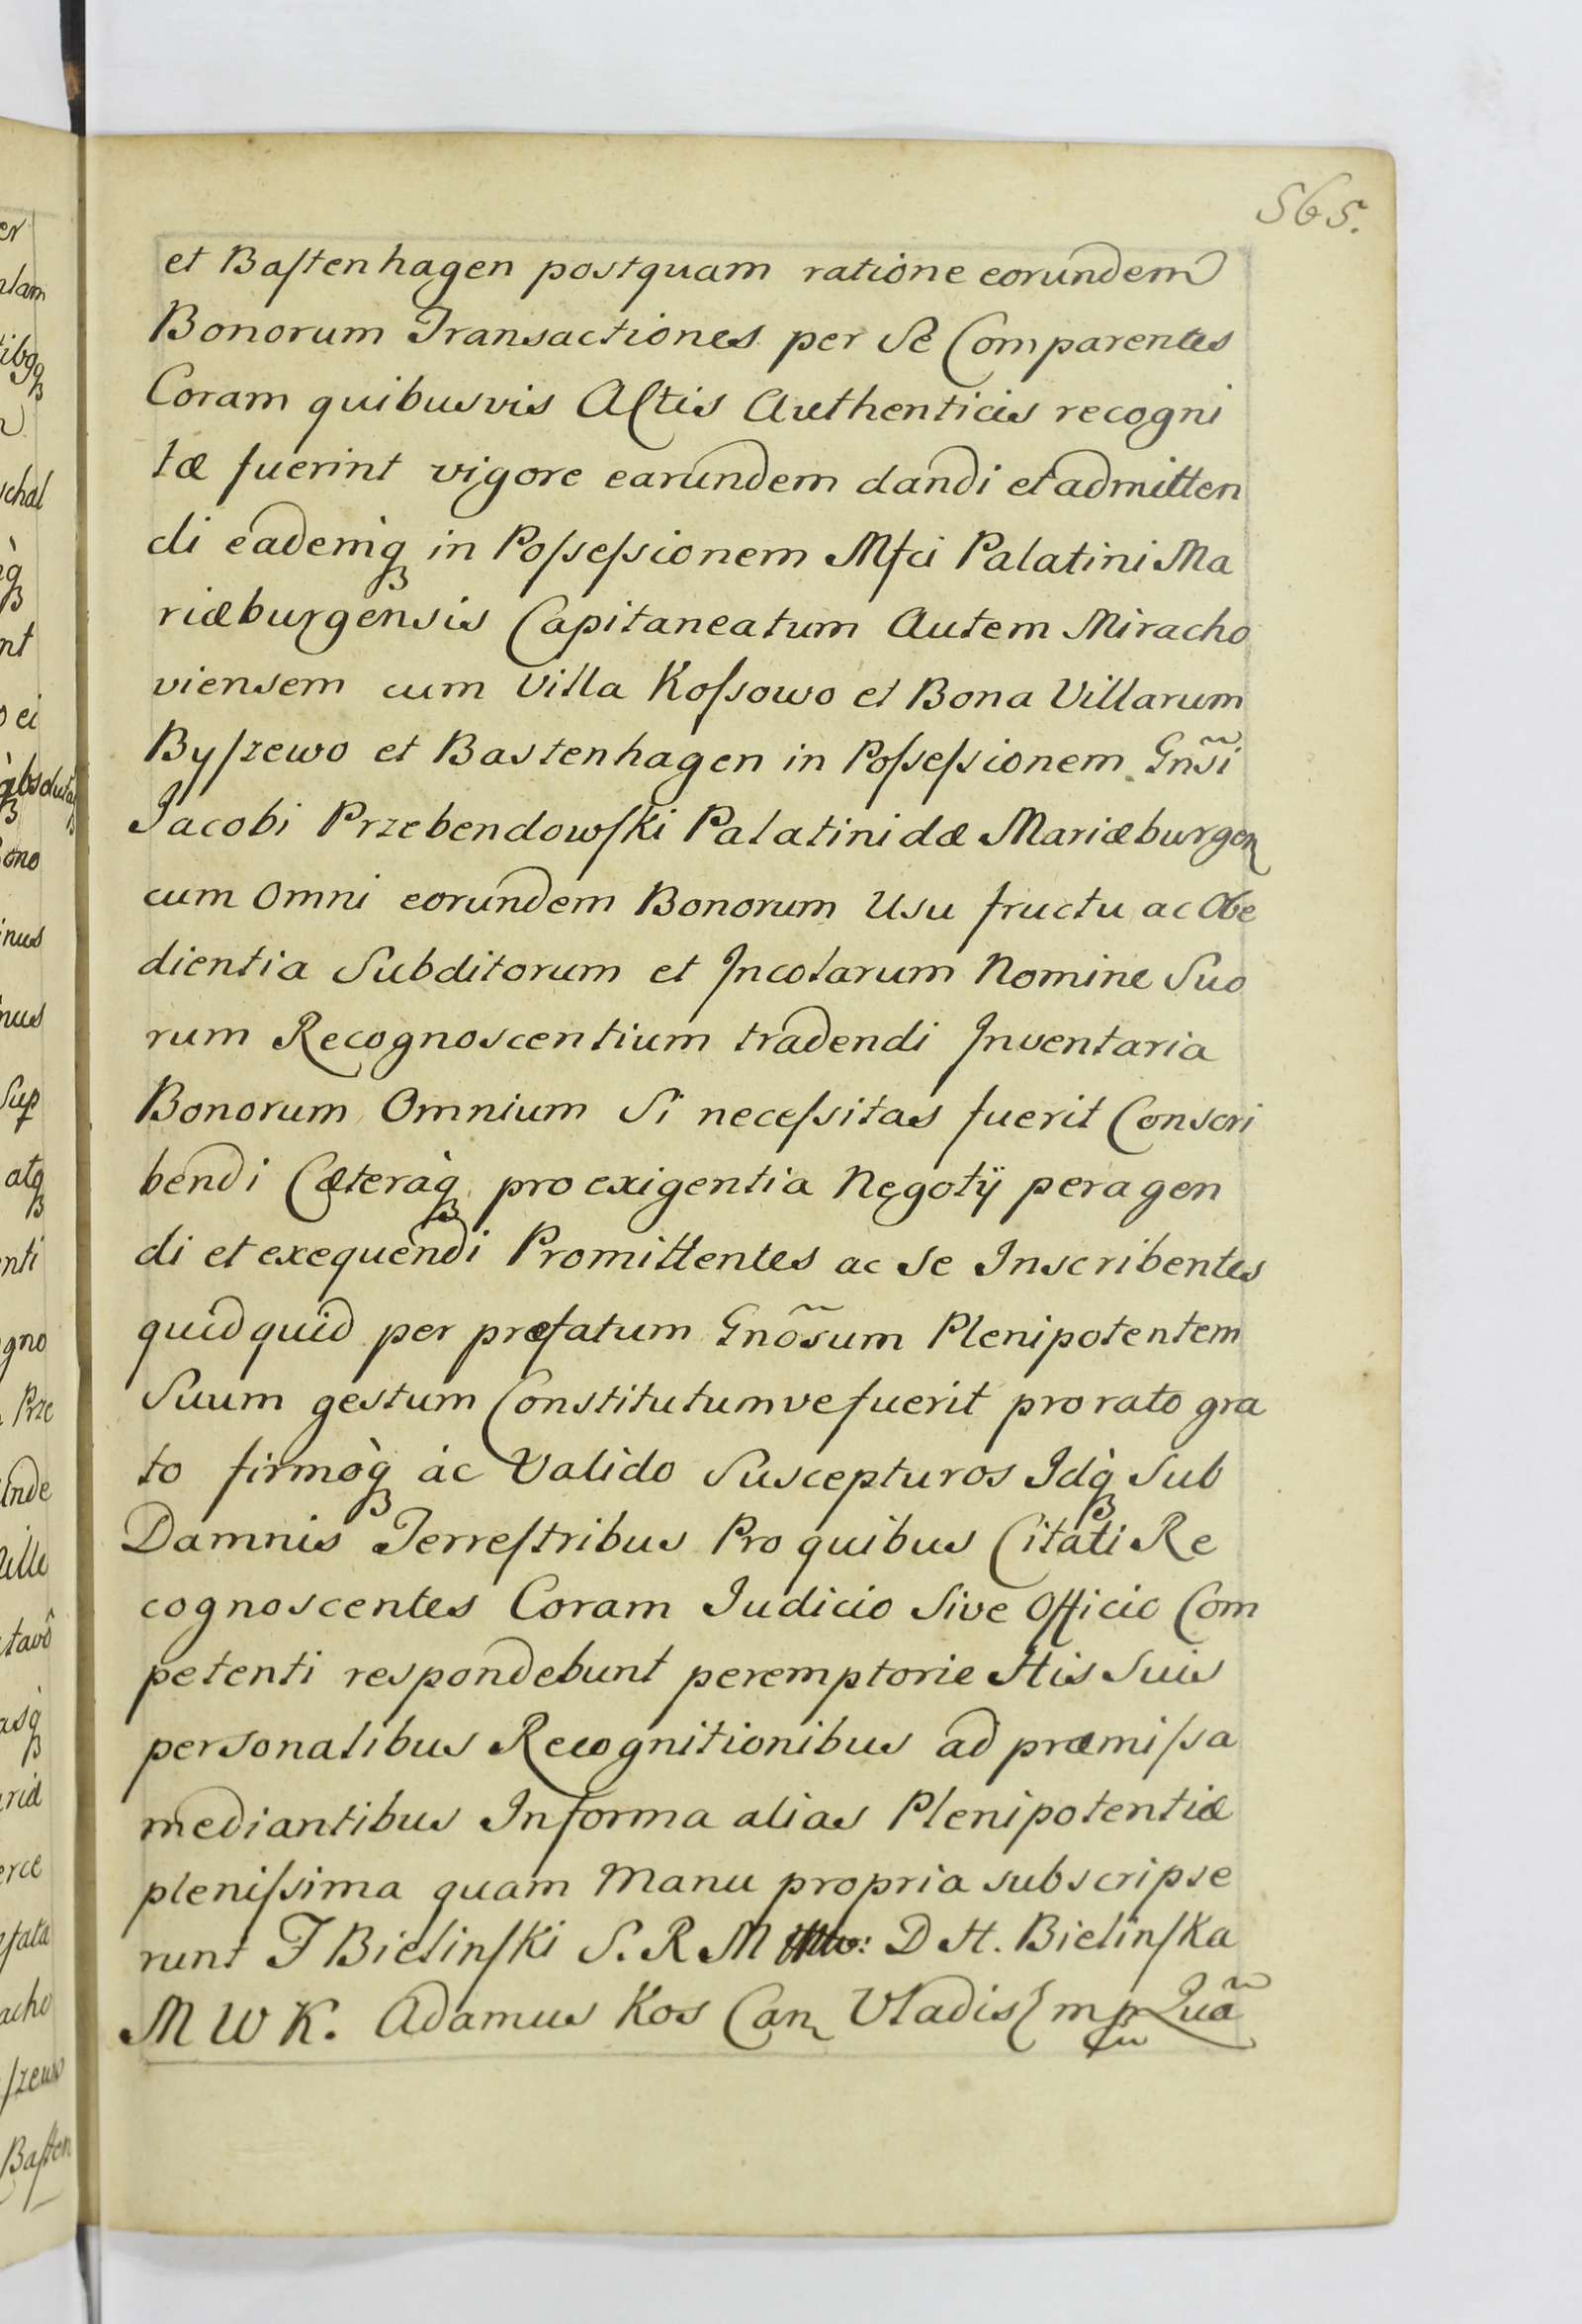 565.
et Baſtenhagen postquam ratione eorundem
Bonorum Transactiones per Se Comparentes
Coram quibusvis Actis Authenticis recogni
tæ fuerint vigore earundem dandi et admitten
di eademq́ꝫ in Poſseſsionem Mfci Palatini Ma
riæburgensis Capitaneatum Autem Miracho
viensem cum Villa Koſsowo et Bona Villarum
Byſzewo et Bastenhagen in Poſseſsionem Gn̄si
Jacobi Przebendowſki Palatinidæ Mariæburgen
cum Omni eorundem Bonorum Usu fructu ac Obe
dientia Subditorum et Incolarum Nomine Suo
rum Recognoscentium tradendi Inventaria
Bonorum Omnium Si neceſsitas fuerit Conscri
bendi Cæteraq̀ꝫ pro exigentia Negotÿ peragen
di et exequendi Promittentes ac Se Inscribentes
quidquid per præfatum Gnõsum Plenipotentem
Suum gestum Constitutumve fuerit pro rato gra
to firmoq̀ꝫ ác Valido Suscepturos Idq̀ꝫ Sub
Damnis Terreſtribus Pro quibus Citati Re
cognoscentes Coram Iudicio Sive Officio Com
petenti respondebunt peremptorie His Suis
personalibus Recognitionibus ad præmiſsa
mediantibus In forma alias Plenipotentiæ
pleniſsima quam Manu propria subscripse
runt F Bielinſki S. R M D H. Bielinſka
M W K. Adamus Kos Can Vladis mp Quã